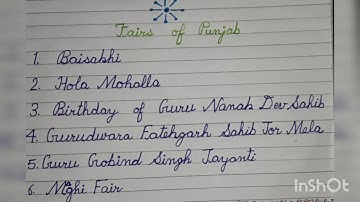 Fairs of Punjab
1. Baisabhi
2. Hola Mohalla
3. Birthday of Guru Nanak Dev Sahib
4. Gurudwara Fatehgarh Sahib Jor Mela
5. Guru Gobind Singh Jayanti
6. Mghi Fair
InShot